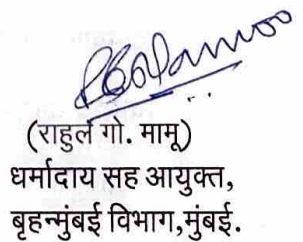 (राहुल गो. मामू)
धर्मादाय सह आयुक्त,
बृहन्मुंबई विभाग,मुंबई.